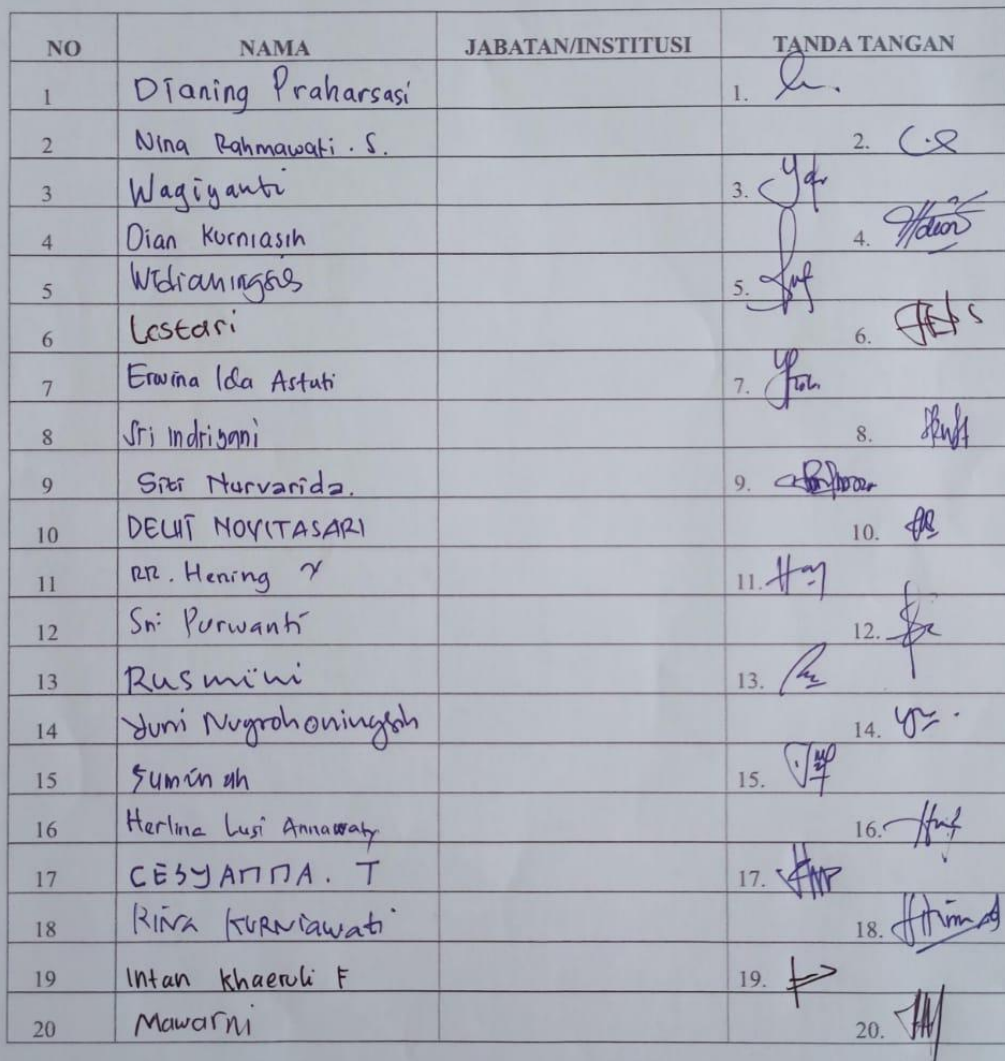 NO NAMA JABATAN/INSTITUSI TANDA TANGAN
1 Dianing Praharsasi 1.
2 Nina Rahmawati . S. 2.
3 Wagiyanti 3.
4 Dian Kurniasih 4.
5 5.
6 Lestari 6.
7 Erwina Ida Astuti 7.
8 Sri Indriyani 8.
9 Siti Nurvarida. 9.
10 DEWI NOVITASARI 10.
11 RR. Hening Y 11.
12 Sri Purwanti 12.
13 Rusmini 13.
14 Yuni Nugrohoningsih 14.
15 Suminah 15.
16 Herlina Lusi Annawaty 16.
17 CESYANNA. T 17.
18 RINA KURNIAWATI 18.
19 Intan Khaeruli F 19.
20 Mawarni 20.